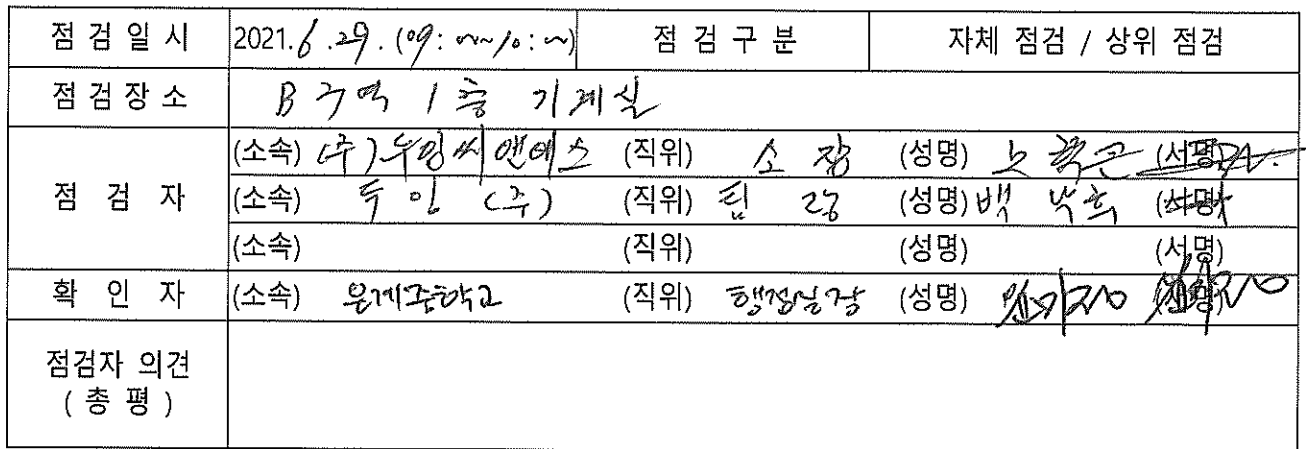 점 검 일 시 2021. 6. 29. (09: ~ 10: ) 점 검 구 분 자체 점검 / 상위 점검
점 검 장 소 B 구역 1 층 기계실
(소속) (주)두잉씨앤에스 (직위) 소장 (성명) 노 (서명)
점 검 자 (소속) 두잉 (주) (직위) 팀 장 (성명) 백 (서명)
(소속) (직위) (성명) (서명)
확 인 자 (소속) 은계중학교 (직위) 행정실장 (성명) (서명)
점검자 의견
( 총 평 )